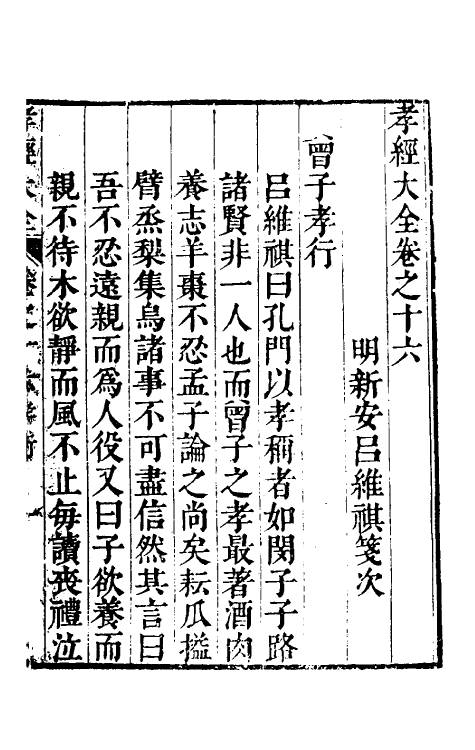 孝經大全卷之十六
明新安呂維祺箋次
曾子孝行
呂維祺曰孔門以孝稱者如閔子子路
諸賢非一人也而曾子之孝最著酒肉
養志羊棗不忍孟子論之尚矣耘瓜搤
臂烝梨集烏諸事不可盡信然其言曰
吾不忍遠親而爲人役又曰子欲養而
親不待木欲靜而風不止每讀喪禮泣
孝經大全